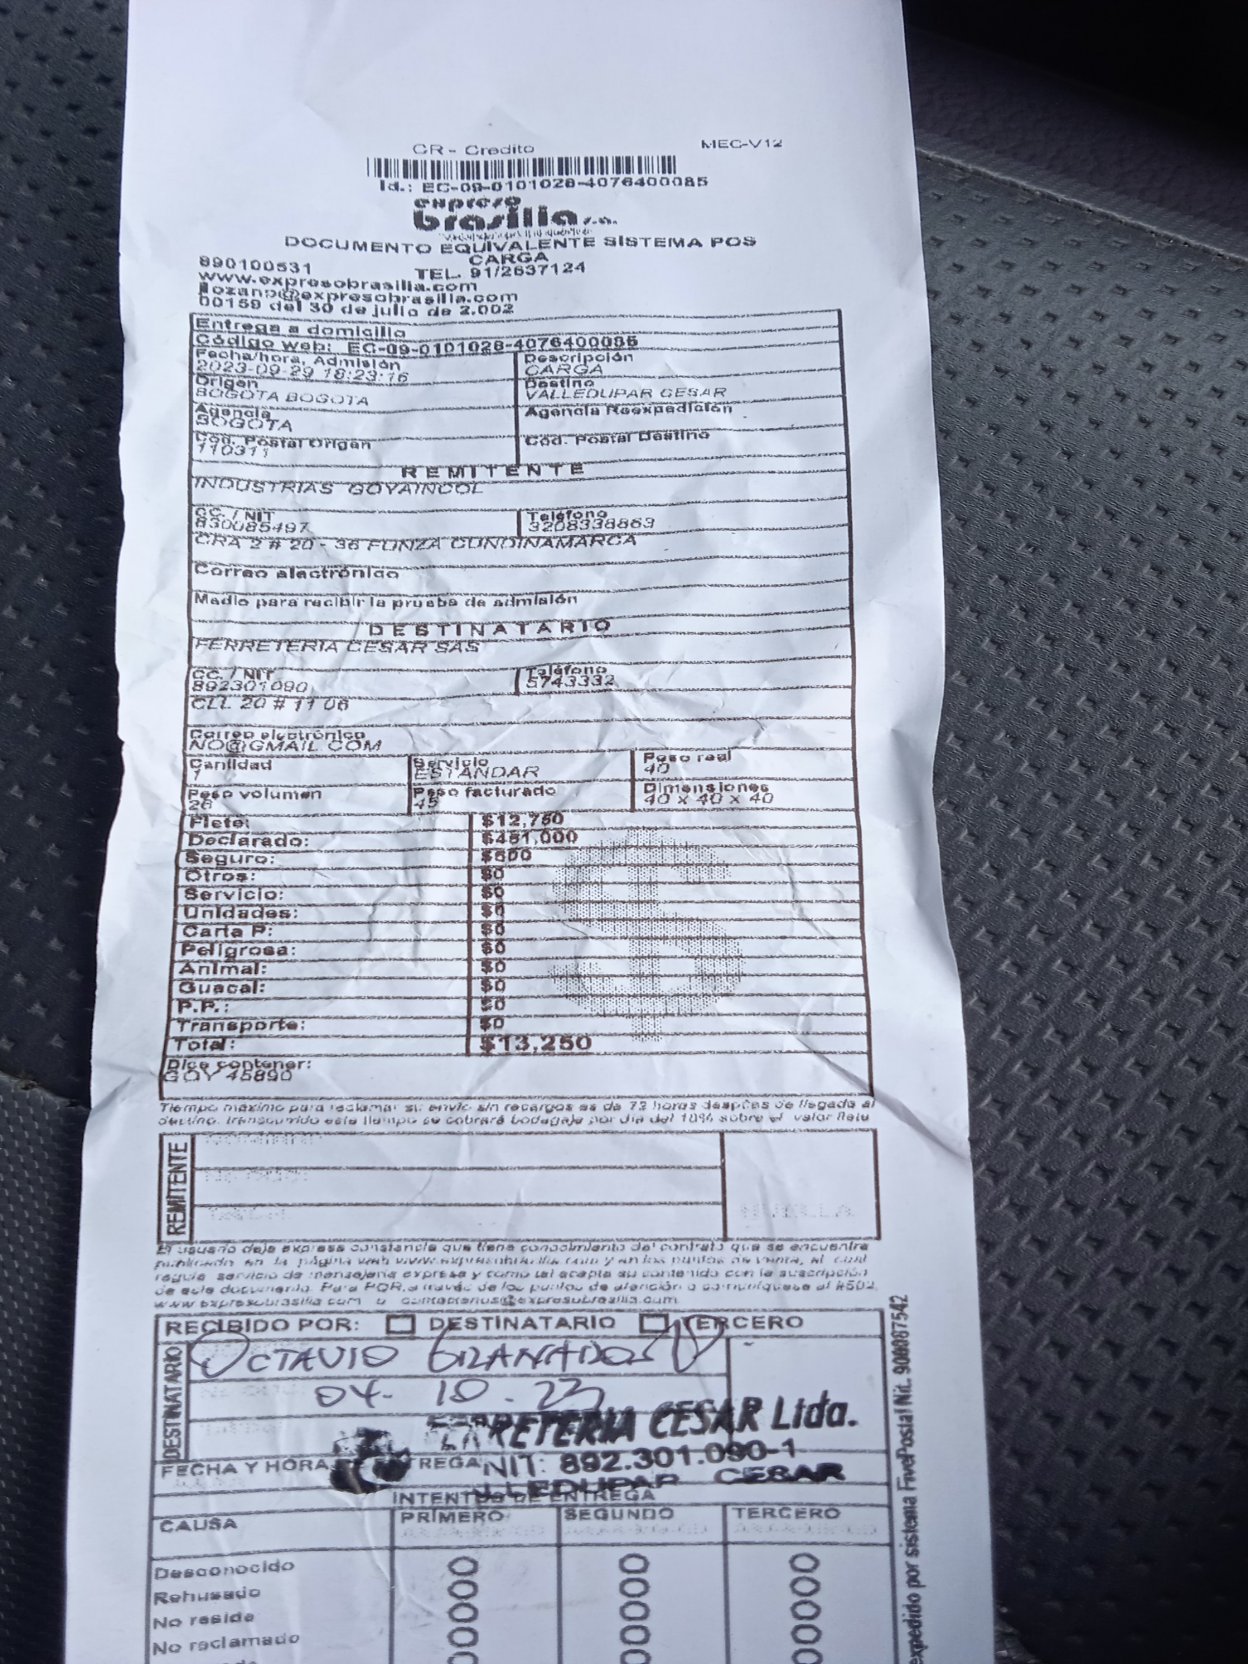 CR - Credito MEC-V12
Id.: EC-09-0101028-4076400085
expreso
brasilia s.a.
DOCUMENTO EQUIVALENTE SISTEMA POS
CARGA
890100531 TEL. 91/2637124
www.expresobrasilia.com
jlozano@expresobrasilia.com
00159 del 30 de julio de 2.002
Entrega a domicilio
Código web: EC-09-0101028-4076400085
Fecha/hora, Admisión Descripción
2023-09-29 18:23:16 CARGA
Origen Destino
BOGOTA BOGOTA VALLEDUPAR CESAR
Agencia Agencia Reexpedición
BOGOTA
Cód. Postal Origen Cód. Postal Destino
110311
REMITENTE
INDUSTRIAS GOYAINCOL
CC. / NIT Teléfono
830085497 3208338863
CRA 2 # 20 - 36 FUNZA CUNDINAMARCA
Correo electrónico
Medio para recibir la prueba de admisión
DESTINATARIO
FERRETERIA CESAR SAS
CC. / NIT Teléfono
892301090 5743332
CLL 20 # 11 06
Correo electrónico
NO@GMAIL.COM
Cantidad Servicio Peso real
1 ESTANDAR 40
Peso volumen Peso facturado Dimensiones
26 45 40 x 40 x 40
Flete: $12,750
Declarado: $451,000
Seguro: $500
Otros: $0
Servicio: $0
Unidades: $0
Carta P: $0
Peligrosa: $0
Animal: $0
Guacal: $0
P.P.: $0
Transporte: $0
Total: $13,250
Dice contener:
GOY 45890
Tiempo máximo para reclamar su envío sin recargos es de 72 horas después de llegada al
destino, transcurrido este tiempo se cobrará bodegaje por día del 10% sobre el valor flete
REMITENTE
HUELLA
El usuario deja expresa constancia que tiene conocimiento del contrato que se encuentra
publicado en la página web www.expresobrasilia.com y en los puntos de venta, el cual
regula servicio de mensajería expresa y como tal acepta su contenido con la suscripción
de este documento. Para PQR a través de los puntos de atención o comuníquese al #502,
www.expresobrasilia.com o contactenos@expresobrasilia.com
RECIBIDO POR: DESTINATARIO TERCERO
DESTINATARIO
OCTAVIO GRANADOS
04- 10 - 23
FERRETERIA CESAR Ltda.
FECHA Y HORA NIT: 892.301.090-1
VALLEDUPAR CESAR
INTENTOS DE ENTREGA
CAUSA PRIMERO SEGUNDO TERCERO
Desconocido
Rehusado
No reside
No reclamado
expedido por sistema FivePostal Nit. 900087542